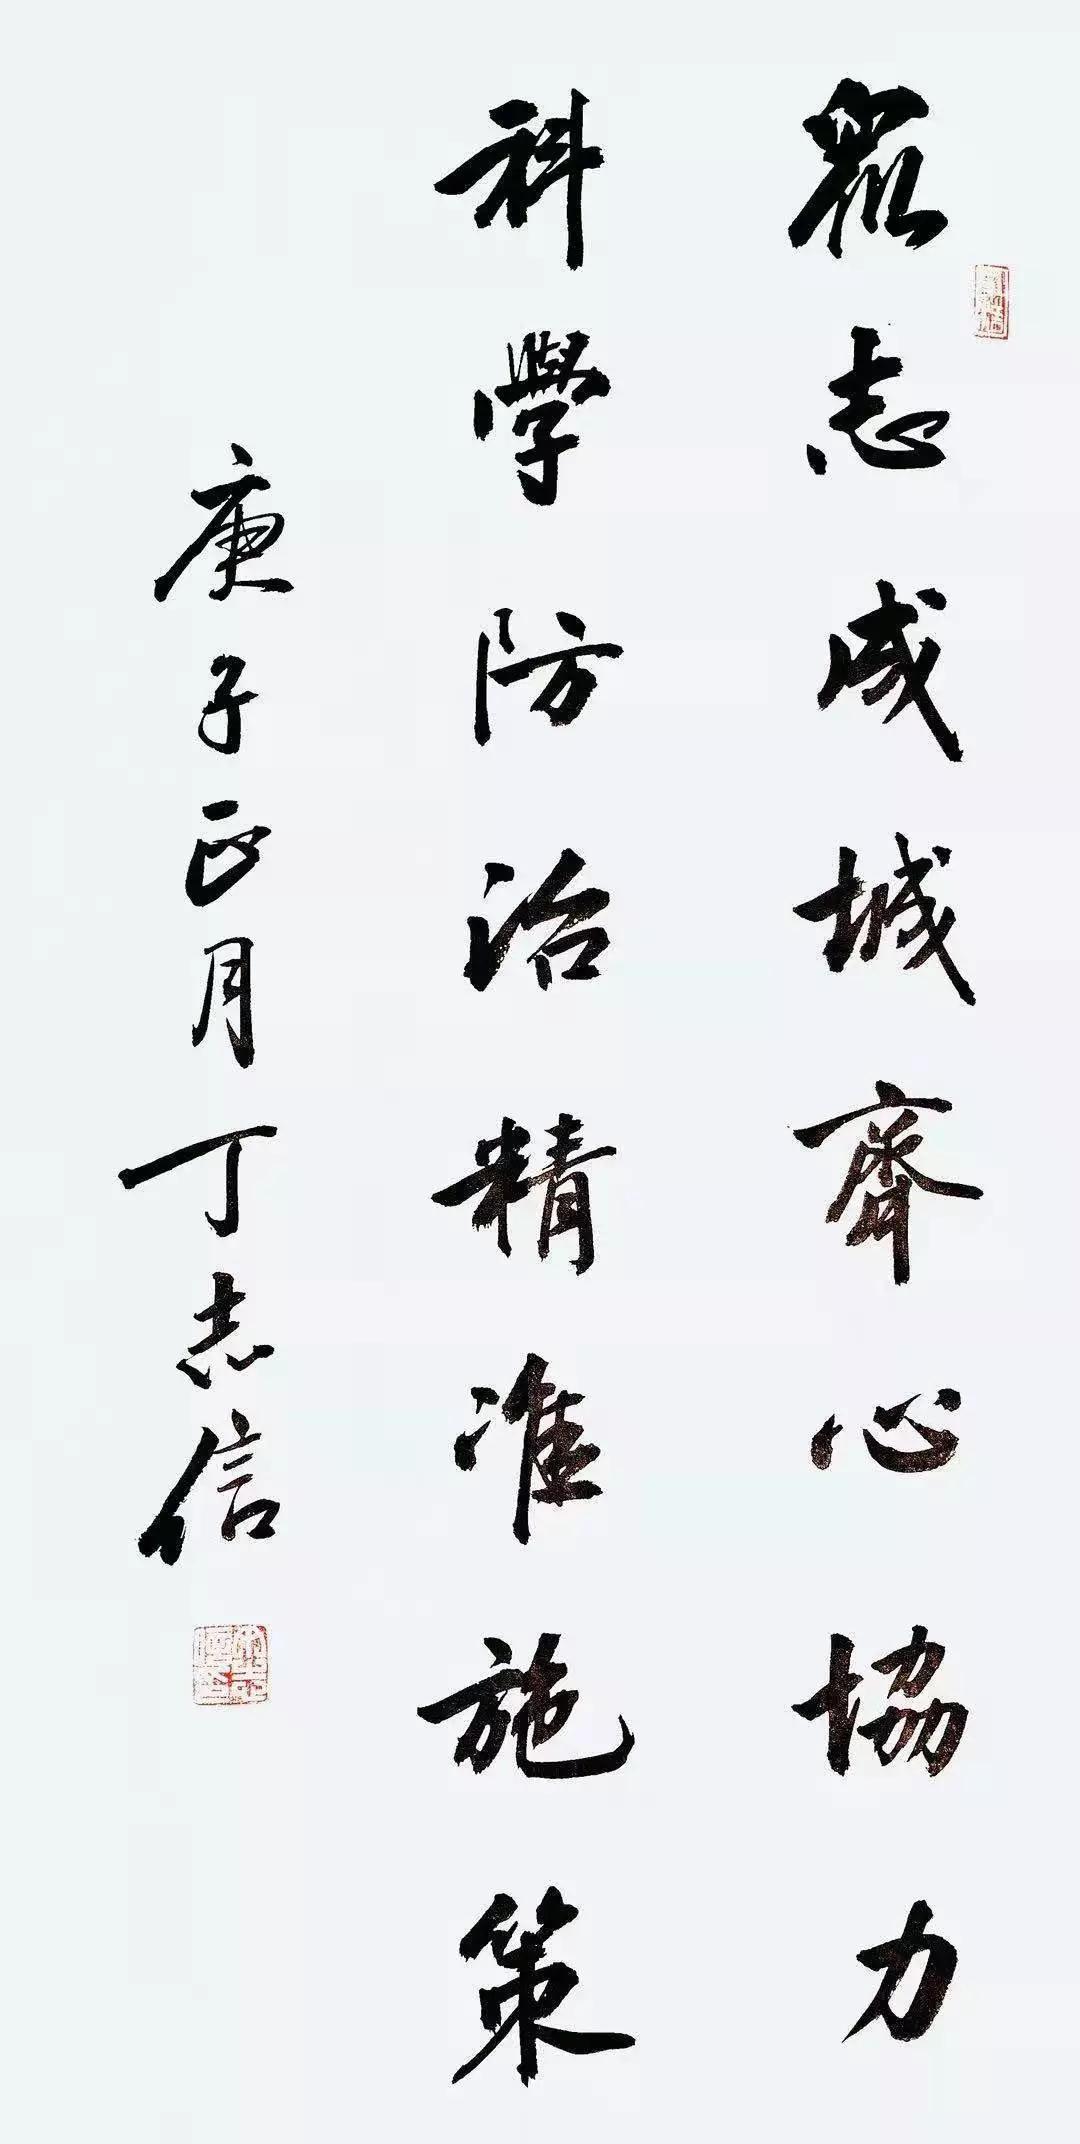 眾志成城齊心協力
科學防治精准施策
庚子正月丁志信